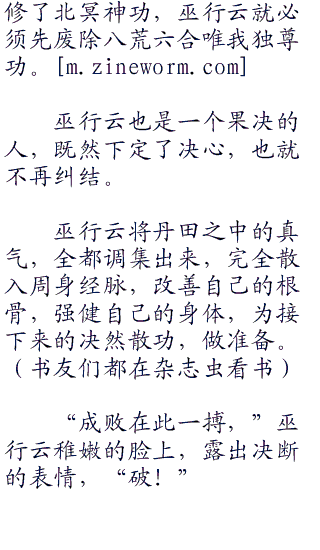 修了北冥神功，巫行云就必
须先废除八荒六合唯我独尊
功。[m.zineworm.com]
巫行云也是一个果决的
人，既然下定了决心，也就
不再纠结。
巫行云将丹田之中的真
气，全都调集出来，完全散
入周身经脉，改善自己的根
骨，强健自己的身体，为接
下来的决然散功，做准备。
（书友们都在杂志虫看书）
“成败在此一搏，”巫
行云稚嫩的脸上，露出决断
的表情，“破！”